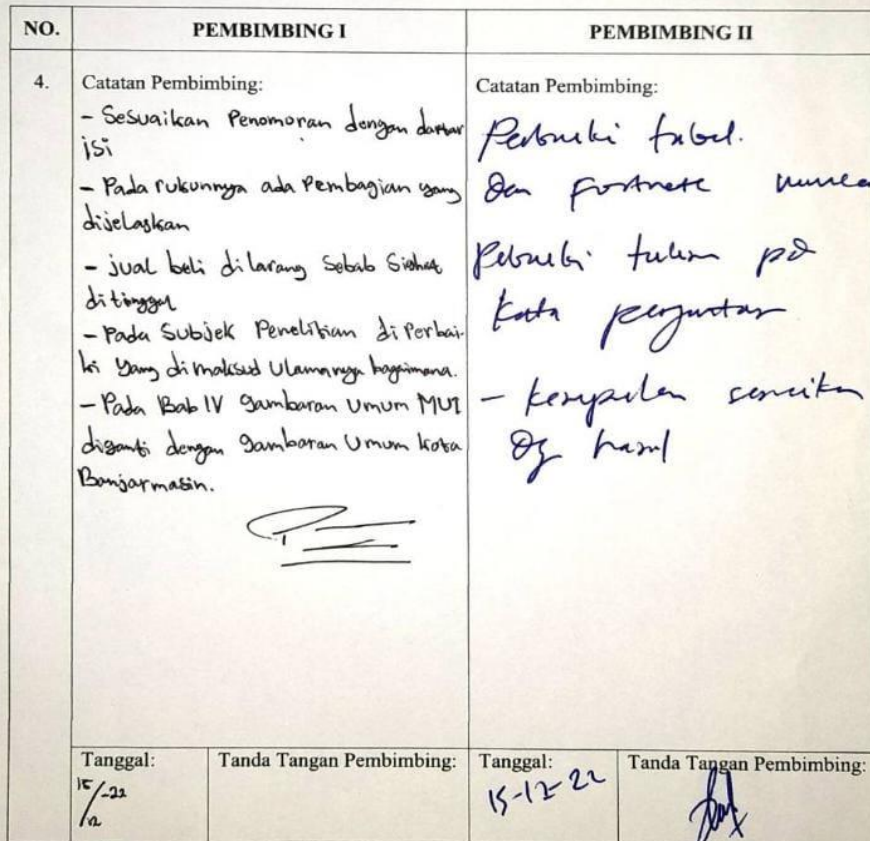 NO.
PEMBIMBING I
PEMBIMBING II
4.
Catatan Pembimbing:
- Sesuaikan Penomoran dengan daftar
isi
- Pada rukunnya ada Pembagian yang
dijelaskan
- jual beli dilarang Sebab
ditinggal
- Pada Subjek Penelitian diPerbai-
ki yang dimaksud Ulamanya bagaimana.
- Pada Bab IV gambaran Umum MUI
diganti dengan gambaran Umum kota
Banjarmasin.
Catatan Pembimbing:
Perbaiki tabel.
Dan
Perbaiki pd
kata pengantar
-
dg hasil
Tanggal:
15/12-22
Tanda Tangan Pembimbing:
Tanggal:
15-12-22
Tanda Tangan Pembimbing: